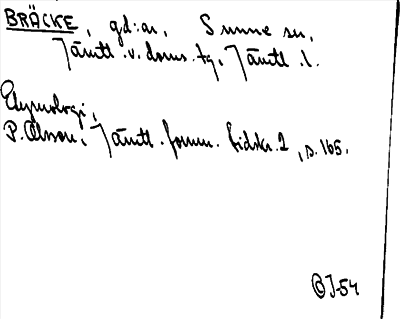 BRÄCKE, gd:ar, Sunne sn,
Jämtl. v. doms. tg, Jämtl. l.
Etymologi,
P. Olsson, Jämtl. fornm. tidskr. 2, s. 165.
J-54